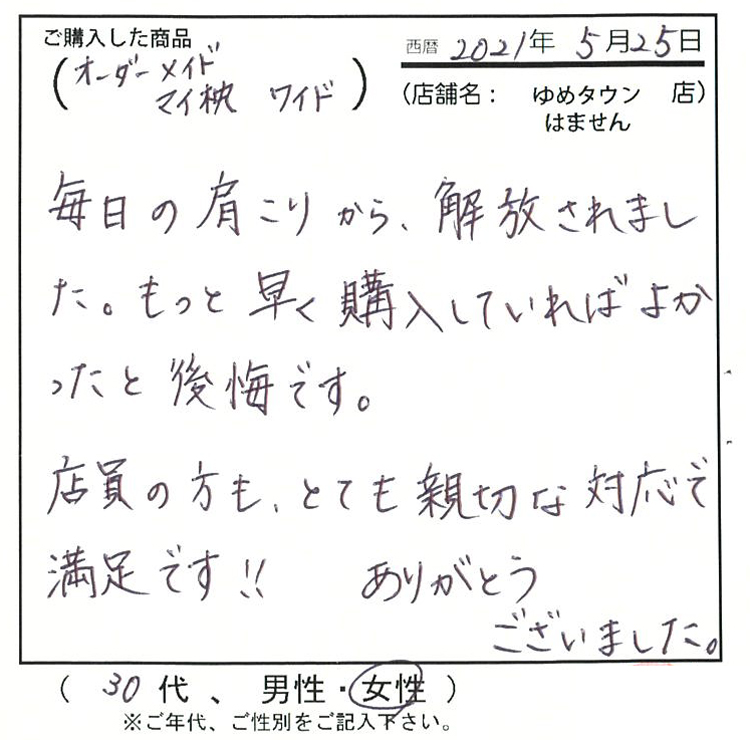 ご購入した商品
(オーダーメイド
マイ枕 ワイド)
西暦 2021年 5月25日
(店舗名: ゆめタウン 店)
はません
毎日の肩こりから、解放されまし
た。もっと早く購入していればよか
ったと後悔です。
店員の方も、とても親切な対応で
満足です!! ありがとう
ございました。
( 30代 、 男性・女性 )
※ご年代、ご性別をご記入下さい。